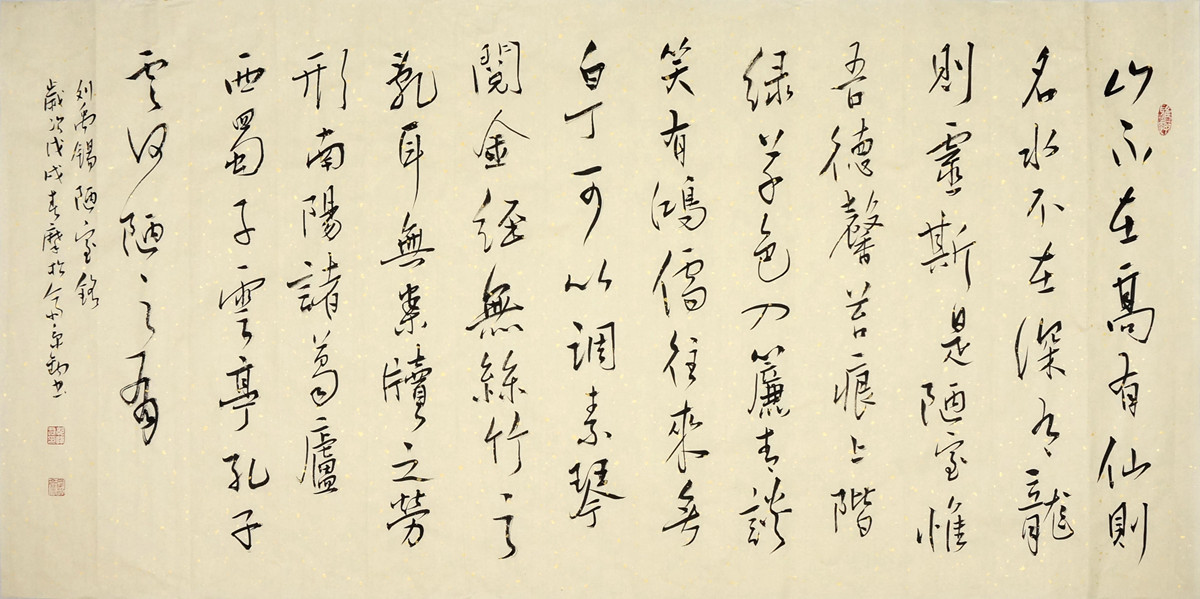 山不在高有仙則
名水不在深有龍
則靈斯是陋室惟
吾德馨苔痕上階
绿草色入簾青談
笑有鴻儒往來無
白丁可以調素琴
閱金經無絲竹之
亂耳無案牘之勞
形南陽諸葛廬
西蜀子雲亭孔子
云何陋之有
刘禹錫陋室銘
歲次戊戌春